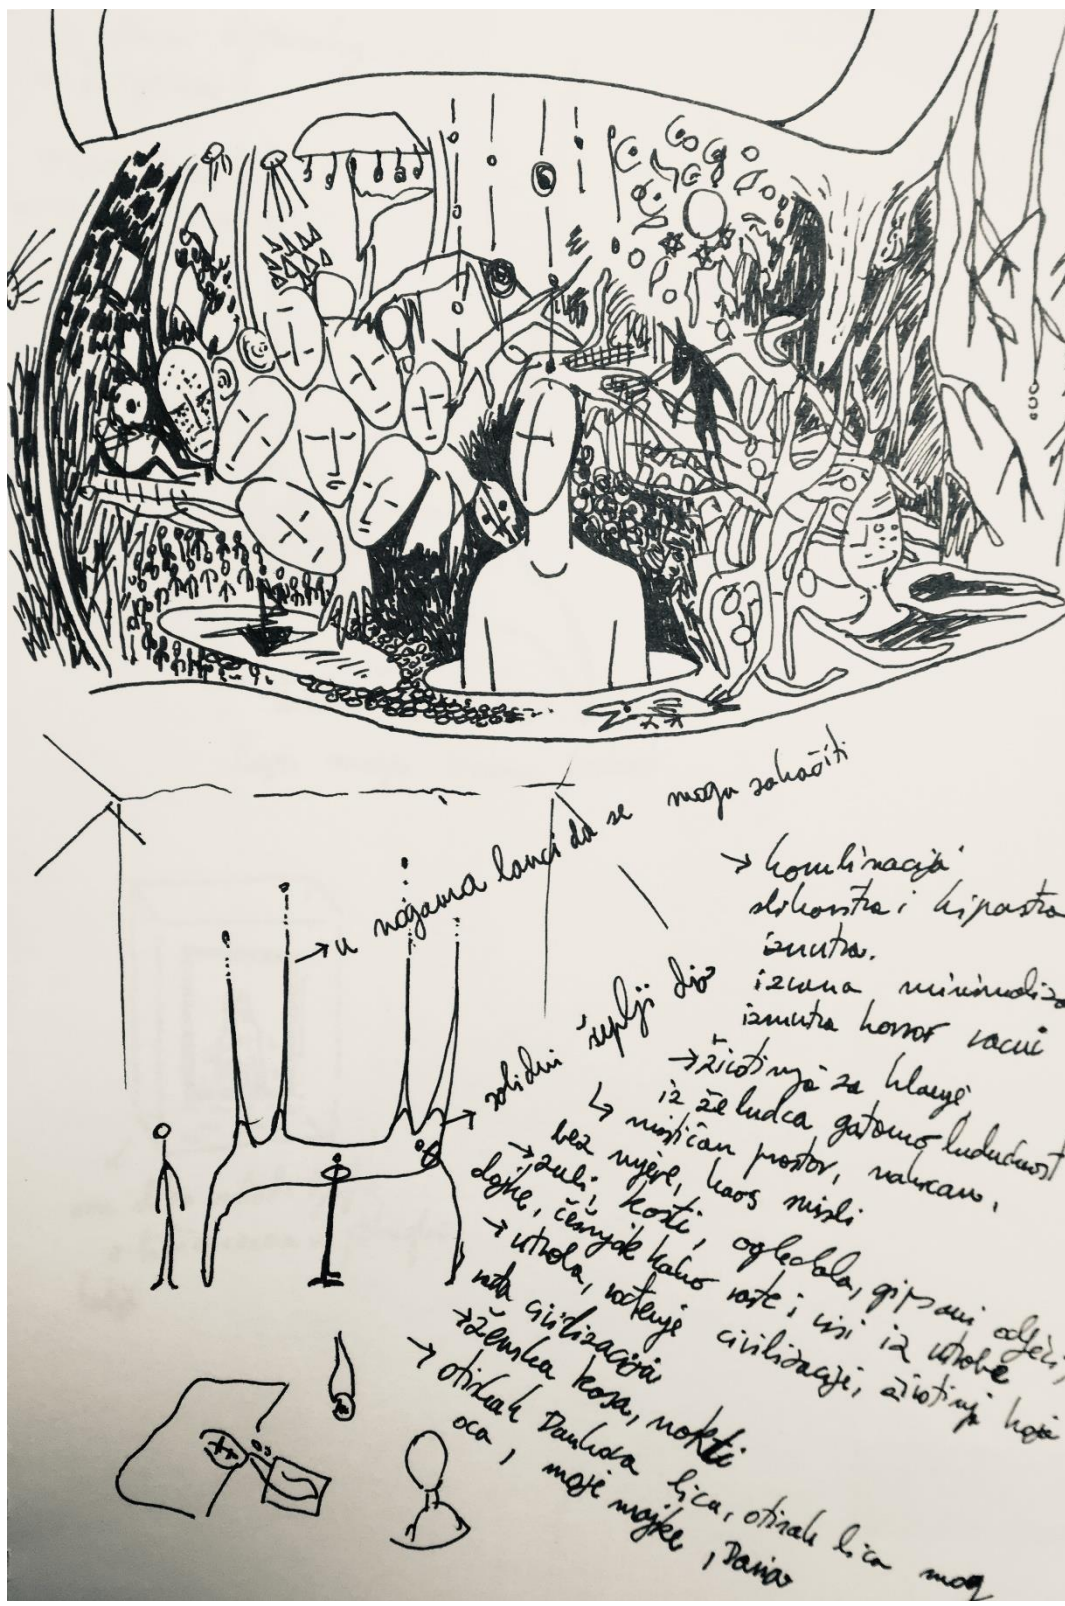 → u nogama lanci da se mogu zakačiti
→ solidni šuplji dio
→ kombinacija
slikarstva i kiparstva
iznutra.
izvana minimaliza
iznutra horror vacui
→ životinja za klanje,
iz želudca gatamo budućnost
↳ mističan prostor, nakrcan,
bez mjere, kaos misli
→ zubi, kosti, ogledala, gipsani odljevi,
dojke, češnjak kako raste i visi iz utrobe
→ utroba, rođenje civilizacije, životinja koja
rađa civilizaciju
→ ženska kosa, nokti
→ otisak lica, otisak lica mog
oca, moje majke,